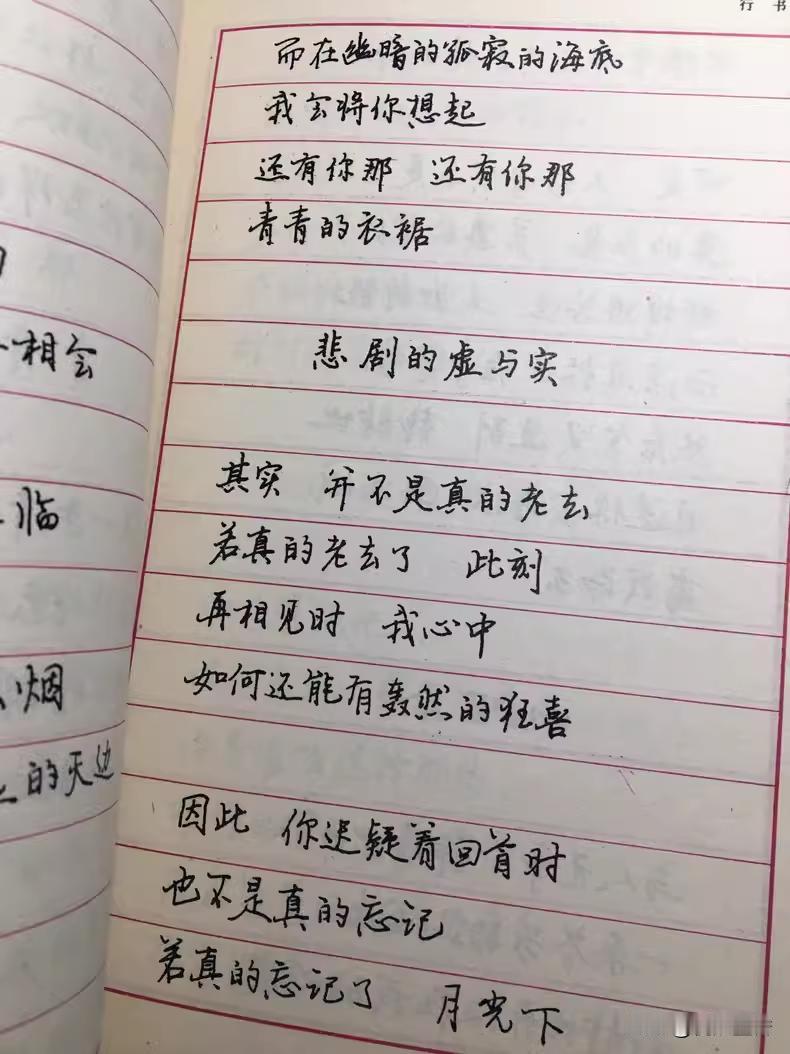 行书
而在幽暗的孤寂的海底
我会将你想起
还有你那 还有你那
青青的衣裾
悲剧的虚与实
其实 并不是真的老去
若真的老去了 此刻
再相见时 我心中
如何还能有轰然的狂喜
因此 你迟疑着回首时
也不是真的忘记
若真的忘记了 月光下
相会
临
烟
的天边